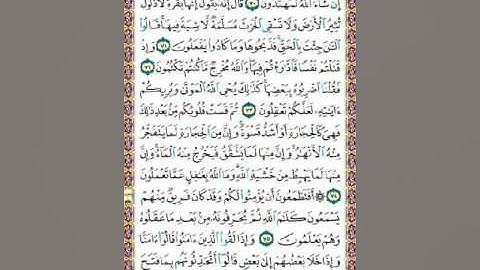 إِن شَآءَ ٱللَّهُ لَمُهْتَدُونَ ٧٠ قَالَ إِنَّهُۥ يَقُولُ إِنَّهَا بَقَرَةٌ لَّا ذَلُولٌ
تُثِيرُ ٱلْأَرْضَ وَلَا تَسْقِى ٱلْحَرْثَ مُسَلَّمَةٌ لَّا شِيَةَ فِيهَا ۚ قَالُوا۟
ٱلْـَٰٔنَ جِئْتَ بِٱلْحَقِّ ۚ فَذَبَحُوهَا وَمَا كَادُوا۟ يَفْعَلُونَ ٧١ وَإِذْ
قَتَلْتُمْ نَفْسًا فَٱدَّٰرَْٰٔتُمْ فِيهَا ۖ وَٱللَّهُ مُخْرِجٌ مَّا كُنتُمْ تَكْتُمُونَ ٧٢
فَقُلْنَا ٱضْرِبُوهُ بِبَعْضِهَا ۚ كَذَٰلِكَ يُحْىِ ٱللَّهُ ٱلْمَوْتَىٰ وَيُرِيكُمْ
ءَايَـٰتِهِۦ لَعَلَّكُمْ تَعْقِلُونَ ٧٣ ثُمَّ قَسَتْ قُلُوبُكُم مِّنۢ بَعْدِ ذَٰلِكَ
فَهِىَ كَٱلْحِجَارَةِ أَوْ أَشَدُّ قَسْوَةً ۚ وَإِنَّ مِنَ ٱلْحِجَارَةِ لَمَا يَتَفَجَّرُ
مِنْهُ ٱلْأَنْهَـٰرُ ۚ وَإِنَّ مِنْهَا لَمَا يَشَّقَّقُ فَيَخْرُجُ مِنْهُ ٱلْمَآءُ ۚ وَإِنَّ
مِنْهَا لَمَا يَهْبِطُ مِنْ خَشْيَةِ ٱللَّهِ ۗ وَمَا ٱللَّهُ بِغَـٰفِلٍ عَمَّا تَعْمَلُونَ
٧٤ ۞ أَفَتَطْمَعُونَ أَن يُؤْمِنُوا۟ لَكُمْ وَقَدْ كَانَ فَرِيقٌ مِّنْهُمْ
يَسْمَعُونَ كَلَـٰمَ ٱللَّهِ ثُمَّ يُحَرِّفُونَهُۥ مِنۢ بَعْدِ مَا عَقَلُوهُ
وَهُمْ يَعْلَمُونَ ٧٥ وَإِذَا لَقُوا۟ ٱلَّذِينَ ءَامَنُوا۟ قَالُوٓا۟ ءَامَنَّا
وَإِذَا خَلَا بَعْضُهُمْ إِلَىٰ بَعْضٍ قَالُوٓا۟ أَتُحَدِّثُونَهُم بِمَا فَتَحَ